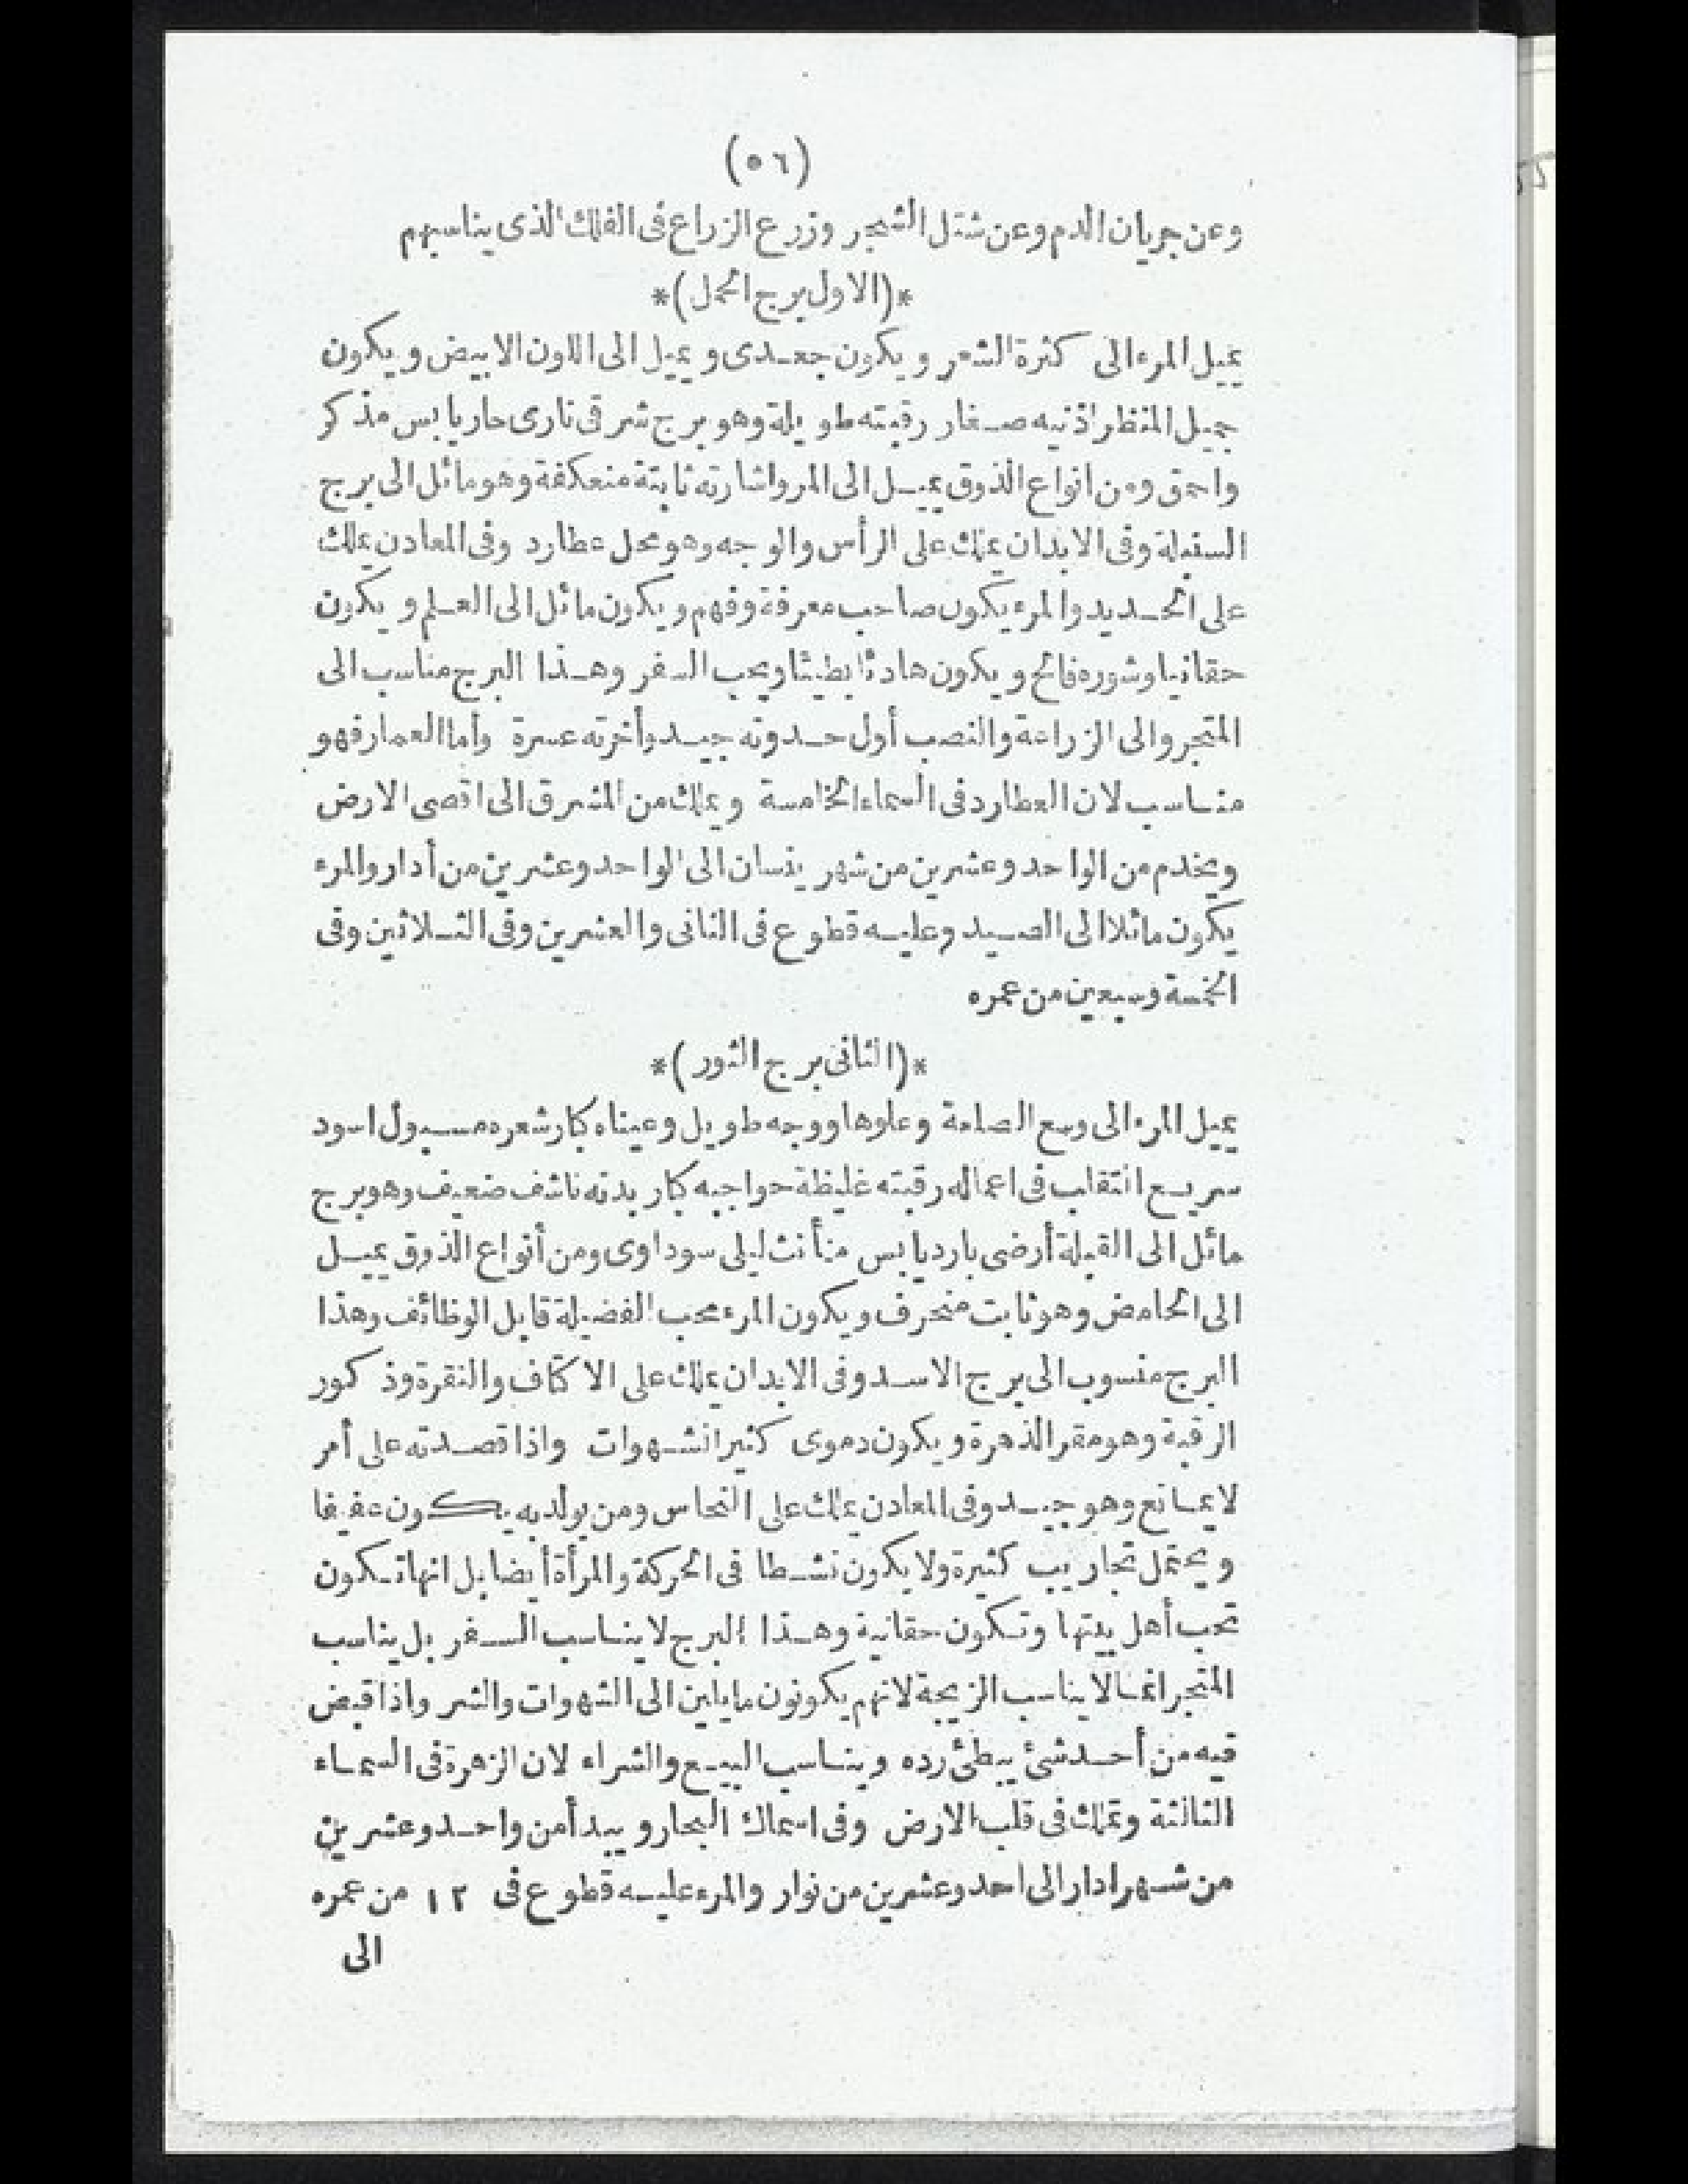 (٥٦)
وعن جريان الدم وعن شتل الشجر وزرع الزراع فى الفلك الذى يناسبهم
*(الاول برج الحمل)*
يميل المرء الى كثرة الشعر ويكون جعدى ويميل الى اللون الابيض ويكون
جميل المنظر اذنيه صغار رقبته طويلة وهو برج شرقى نارى حار يابس مذكر
واحمق ومن انواع الذوق يميل الى المر واشارته ثابتة منعكفة وهو مائل الى برج
السنبلة وفى الابدان يملك على الرأس والوجه وهو محل عطارد وفى المعادن يملك
على الحديد والمرء يكون صاحب معرفة وفهم ويكون مائل الى العلم ويكون
حقانيا وشوره فالح ويكون هادئا بطيئا ويحب السفر وهذا البرج مناسب الى
المتجر والى الزراعة والنصب أول حدوته جيد وأخرته عسرة وأما العمار فهو
مناسب لان العطارد فى السماء الخامسة ويملك من المشرق الى اقصى الارض
ويخدم من الواحد وعشرين من شهر ينسان الى الواحد وعشرين من أدار والمرء
يكون مائلا الى الصيد وعليه قطوع فى الثانى والعشرين وفى الثلاثين وفى
الخمسة وسبعين من عمره
*(الثانى برج الثور)*
يميل المرء الى وسع الصلعة وعلوها ووجه طويل وعيناه كار شعره مسبول اسود
سريع انتقاب فى اعماله رقبته غليظة حواجبه كار بدنه ناشف ضعيف وهو برج
مائل الى القبلة أرضى بارد يابس متأنث ليلى سوداوى ومن أنواع الذوق يميل
الى الحامض وهو ثابت منحرف ويكون المرء محب الفضيلة قابل الوظائف وهذا
البرج منسوب الى برج الاسد وفى الابدان يملك على الاكتاف والنقرة وذكور
الرقبة وهو مقر الذهرة ويكون دموى كثير الشهوات واذا قصدته على أمر
لا يمانع وهو جيد وفى المعادن يملك على النحاس ومن يولد به يكون عفيفا
ويحتمل تجاريب كثيرة ولا يكون نشطا فى الحركة والمرأة أيضا بل انها تكون
تحب أهل بيتها وتكون حقانية وهذا البرج لا يناسب السفر بل يناسب
المتجر انما لا يناسب الزيجة لانهم يكونون مايلين الى الشهوات والشر واذا قبض
فيه من أحد شئ يبطئ رده ويناسب البيع والشراء لان الزهرة فى السماء
الثالثة وتملك فى قلب الارض وفى اسماك البحار ويبدأ من واحد وعشرين
من شهر ادار الى احد وعشرين من نوار والمرء عليه قطوع فى ١٢ من عمره
الى